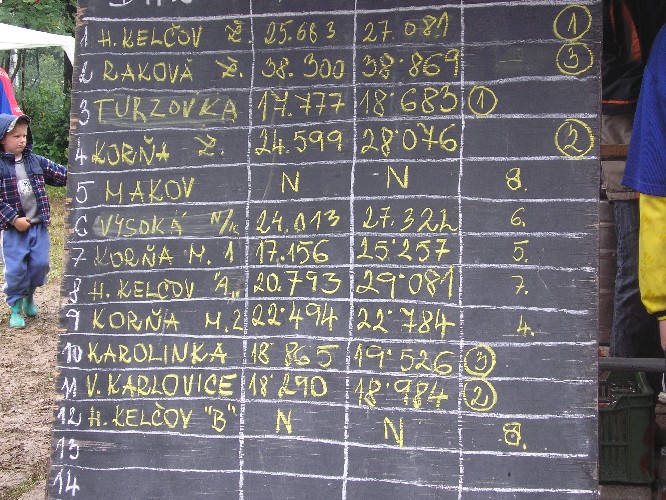 1 H. KELČOV Ž. 25.683 27.081 1
2 RAKOVÁ Ž. 38.300 38'869 3
3 TURZOVKA 17.777 18'683 1
4 KORŇA Ž. 24.599 28'076 2
5 MAKOV N N 8.
6 VYSOKÁ N/K 24.013 27.322 6.
7 KORŇA M. 1 17.156 25'257 5.
8 H. KELČOV "A" 20.793 29'081 7.
9 KORŇA M. 2 22'494 22'784 4.
10 KAROLINKA 18'865 19'526 3
11 V. KARLOVICE 18'290 18'984 2
12 H. KELČOV "B" N N 8.
13
14